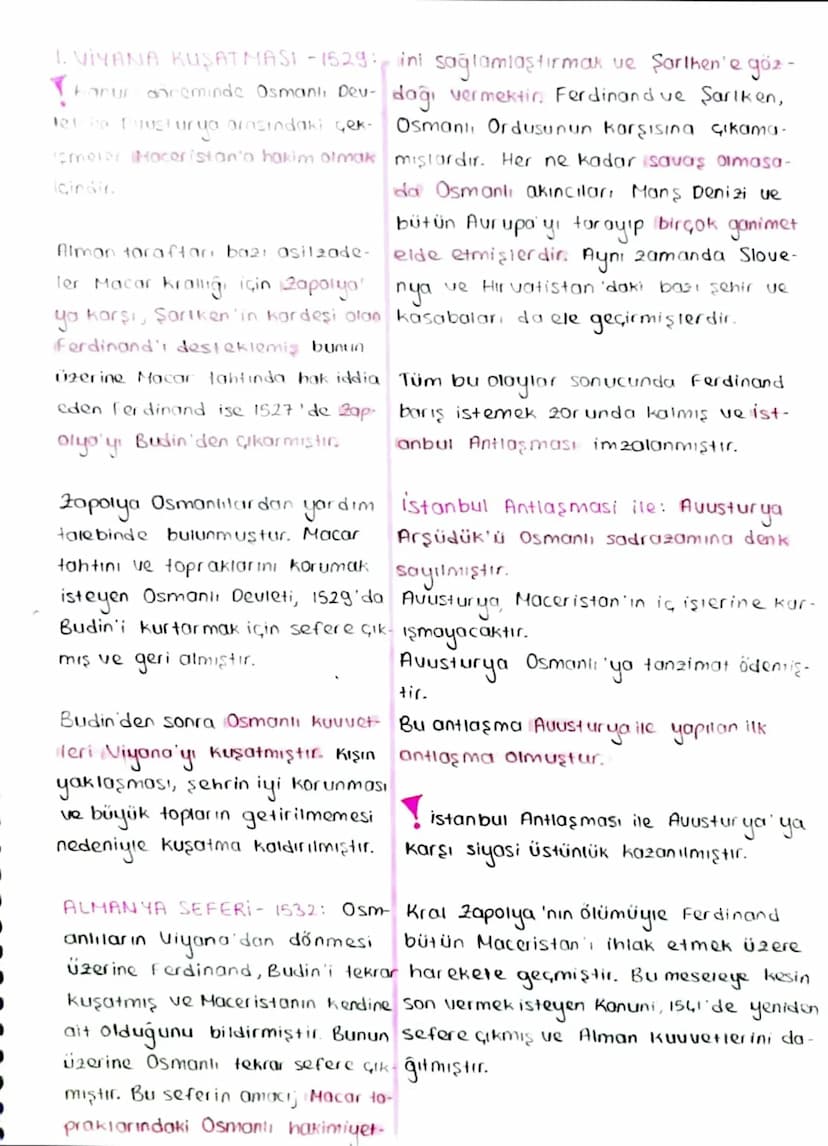 1. VİYANA KUŞATMASI - 1529:
! Kanuni döneminde Osmanlı Dev-
let ile Avusturya arasındaki çek-
işmeler Maceristan'a hakim olmak
içindir.
Alman taraftarı bazı asilzade-
ler Macar krallığı için Zapolya'
ya karşı, Şarlken'in kardeşi olan
Ferdinand'ı desteklemiş bunun
üzerine Macar tahtında hak iddia
eden Ferdinand ise 1527'de Zap-
olya'yı Budin'den çıkarmıştır.
Zapolya Osmanlılardan yardım
talebinde bulunmuştur. Macar
tahtını ve topraklarını korumak
isteyen Osmanlı Devleti, 1529'da
Budin'i kurtarmak için sefere çık-
mış ve geri almıştır.
Budin'den sonra Osmanlı kuvvet-
leri Viyana'yı kuşatmıştır. Kışın
yaklaşması, şehrin iyi korunması
ve büyük topların getirilmemesi
nedeniyle kuşatma kaldırılmıştır.
ALMANYA SEFERİ - 1532: Osm-
anlıların Viyana'dan dönmesi
üzerine Ferdinand, Budin'i tekrar
kuşatmış ve Maceristanın kendine
ait olduğunu bildirmiştir. Bunun
üzerine Osmanlı tekrar sefere çık-
mıştır. Bu seferin amacı; Macar to-
praklarındaki Osmanlı hakimiyet-
ini sağlamlaştırmak ve Şarlhen'e göz-
dağı vermektir. Ferdinand ve Şarlken,
Osmanlı Ordusunun karşısına çıkama-
mışlardır. Her ne kadar savaş olmasa-
da Osmanlı akıncıları Manş Denizi ve
bütün Avrupa'yı tarayıp birçok ganimet
elde etmişlerdir. Aynı zamanda Slove-
nya ve Hırvatistan'daki bazı şehir ve
kasabaları da ele geçirmişlerdir.
Tüm bu olaylar sonucunda Ferdinand
barış istemek zorunda kalmış ve ist-
anbul Antlaşması imzalanmıştır.
İstanbul Antlaşması ile: Avusturya
Arşüdük'ü Osmanlı sadrazamına denk
sayılmıştır.
Avusturya, Maceristan'ın iç işlerine kar-
ışmayacaktır.
Avusturya Osmanlı'ya tanzimat ödemiş-
tir.
Bu antlaşma Avusturya ile yapılan ilk
antlaşma olmuştur.
! istanbul Antlaşması ile Avusturya'ya
karşı siyasi üstünlük kazanılmıştır.
Kral Zapolya'nın ölümüyle Ferdinand
bütün Maceristan'ı ihlak etmek üzere
harekete geçmiştir. Bu meseleye kesin
son vermek isteyen Kanuni, 1541'de yeniden
sefere çıkmış ve Alman kuvvetlerini da-
ğıtmıştır.